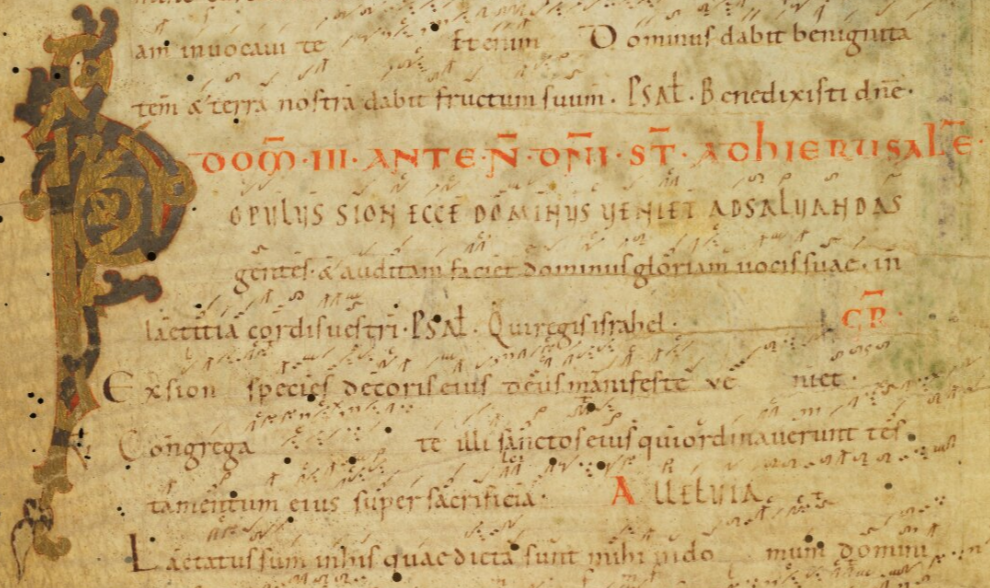 am invocavi te Et enim Dominus dabit benignita
tem & terra nostra dabit fructum suum · Psał · Benedixisti dn̄e ·
DOM̄ · III · ANTE · N̄ · DN̄I · ST̄ · ADhIERUSALE̅ ·
POPULUS SION ECCE DOMINUS UENIET ADSALUANDAS
gentes · & auditam faciet dominus gloriam uocis suae · in
laetitia cordis uestri · Psał · Qui regis israhel · GR̄ ·
Ex sion species decoris eius deus manifeste ve niet ·
Congrega te illi sanctos eius qui ordinaverunt tes
tamentum eius super sacrificia · ALLELUIA
Laetatus sum in his quae dicta sunt mihi in do mum domini